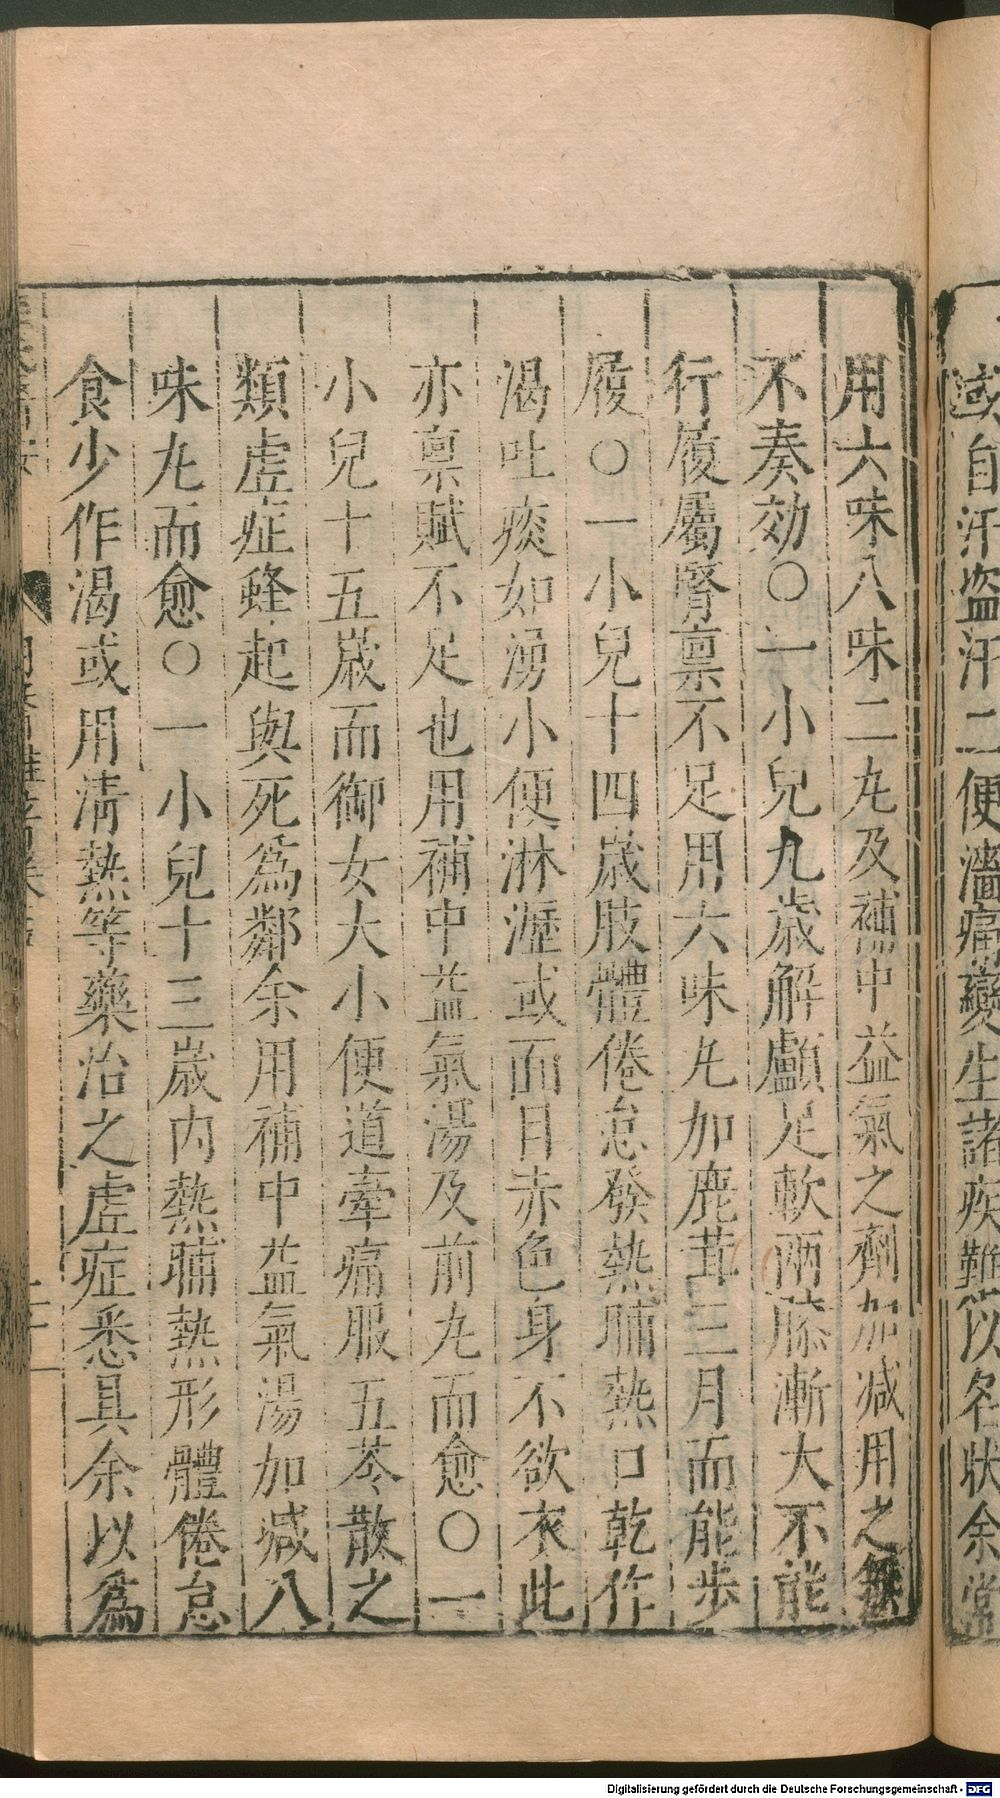 或自汗盜汗二便濇痛變生諸疾難以名狀余嘗
用六味八味二丸及補中益氣之劑加减用之無
不奏効○一小兒九歳解顱足軟兩膝漸大不能
行履屬腎禀不足用六味丸加鹿茸三月而能步
履○一小兒十四歳肢體倦怠發熱晡熱口乾作
渴吐痰如湧小便淋瀝或面目赤色身不欲衣此
亦禀賦不足也用補中益氣湯及前丸而愈○一
小兒十五歳而御女大小便道牽痛服五苓散之
類虚症蜂起與死爲鄰余用補中益氣湯加减八
味丸而愈○一小兒十三歳内熱晡熱形體倦怠
食少作渴或用清熱等藥治之虚症悉具余以爲
Digitalisierung gefördert durch die Deutsche Forschungsgemeinschaft - DFG